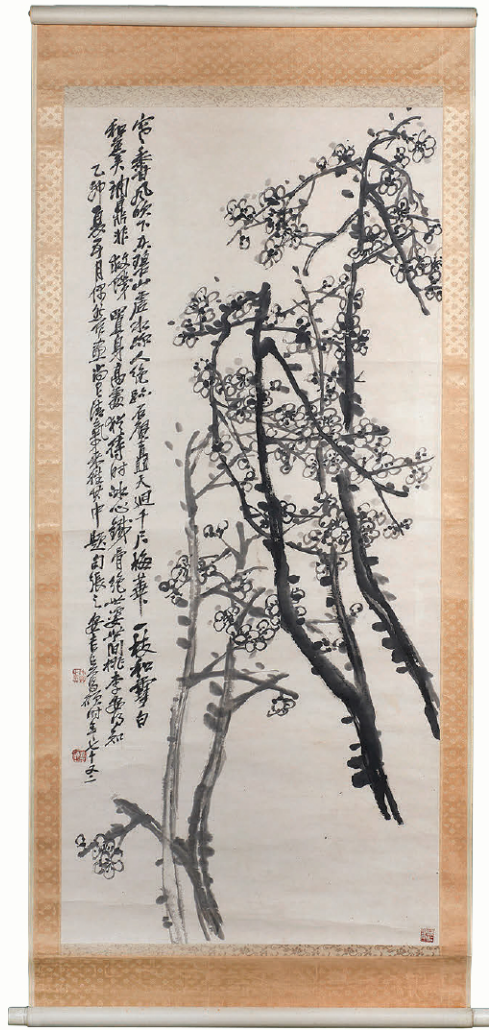 寒香風吹下東碧山虛水深人絕跡石壁矗天迥千尺梅華一枝和雪白
和羹調鼎非救饑置身高處猶待時冰心鐵骨絕世姿世間桃李安得知
乙卯夏五月偶然作畫尚有浩氣來往其中題句張之安吉吳昌碩時年七十又二